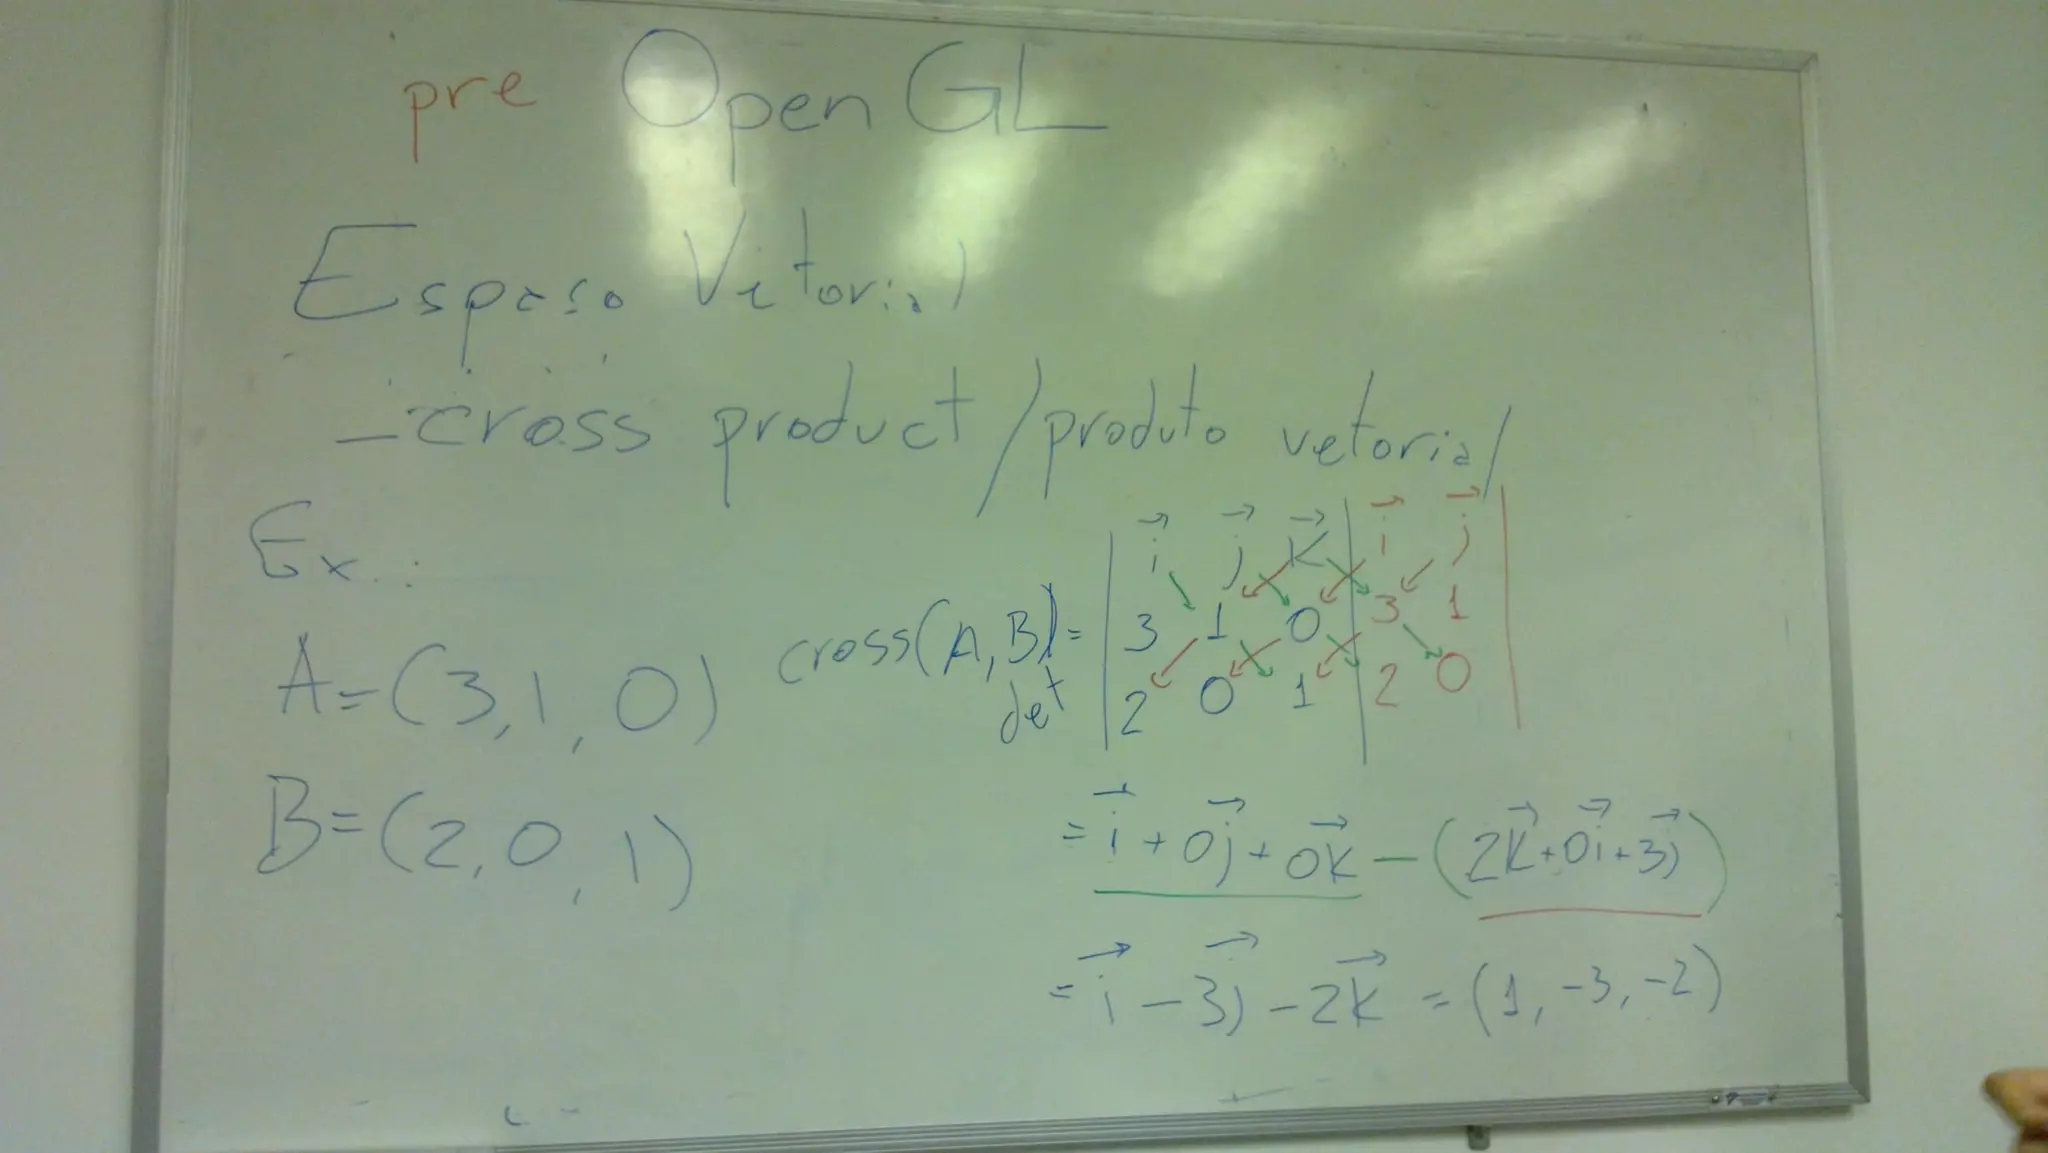 pre OpenGL
Espaço Vetorial
- cross product / produto vetorial
Ex.:
A=(3,1,0)
B=(2,0,1)
cross(A,B)=
det
i j k i j
3 1 0 3 1
2 0 1 2 0
= i + 0j + 0k - (2k+0i+3j)
= i - 3j - 2k = (1, -3, -2)